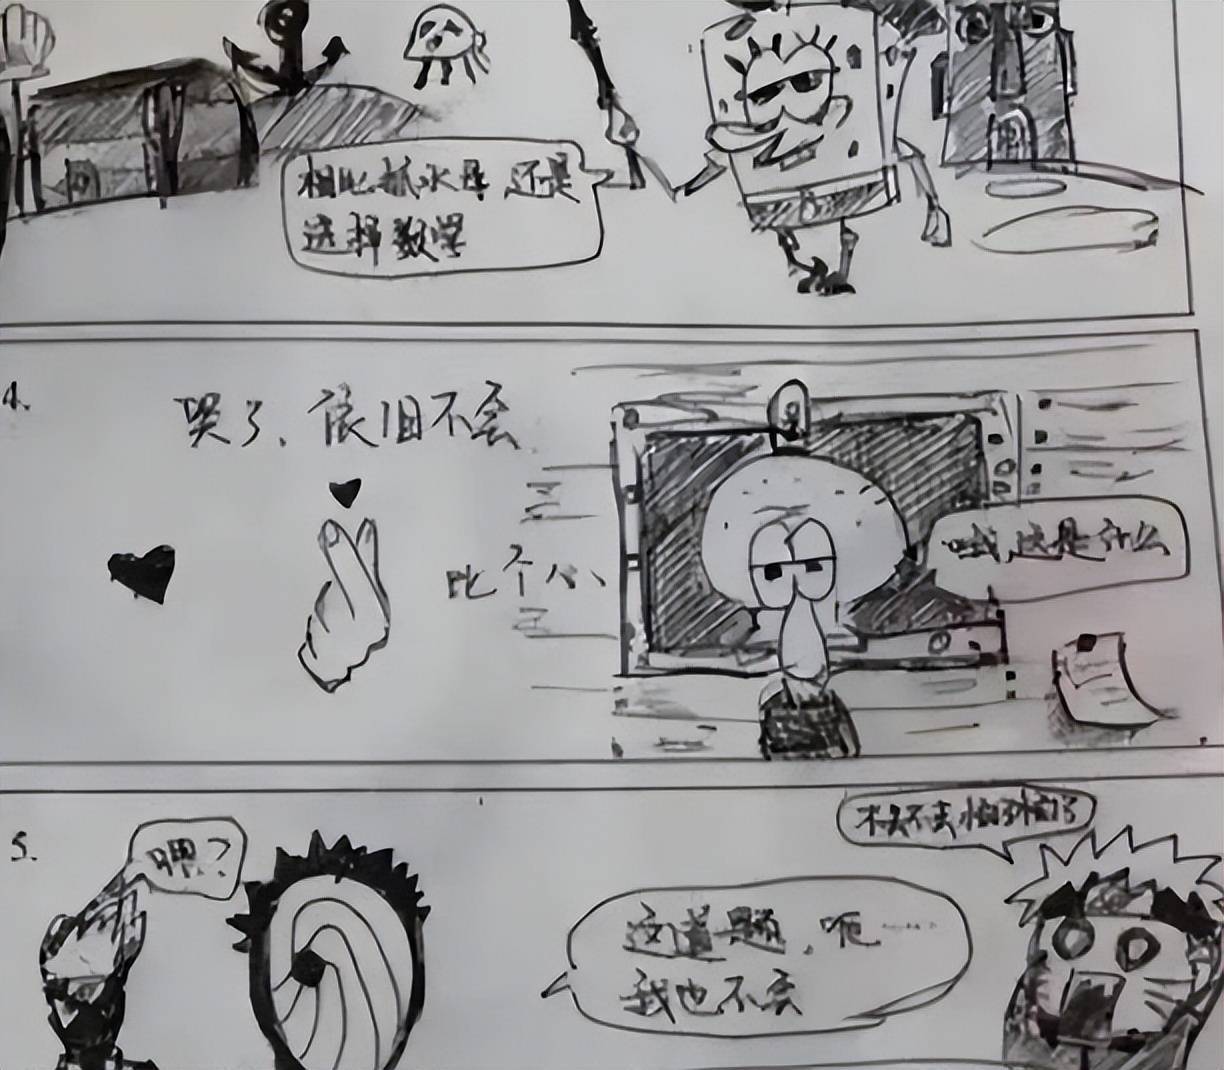 相比抓水母,还是
选择数学
4.
哭了、依旧不会
比个心、
哦,这是什么
5.
嗯?
不会
这道题,呃……
我也不会